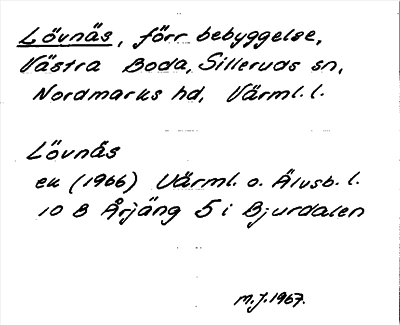 Lövnäs, förr bebyggelse,
Västra Boda, Silleruds sn,
Nordmarks hd, Värml. l.
Lövnäs
ek (1966) Värml. o. Älvsb. l.
10 B Årjäng 5 i Bjurdalen
M.J. 1967.